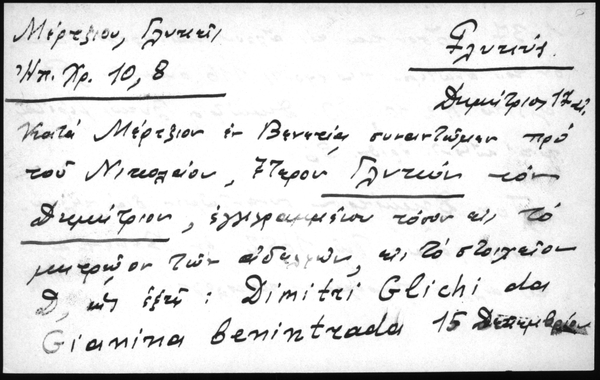 Μέρτζιου, Γλυκεῖς
Ἠπ. Χρ. 10, 8
Γλυκύς.
Δημήτριος 17
Κατὰ Μέρτζιον ἐν Βενετίᾳ συναντῶμεν πρὸ
τοῦ Νικολαίου, ἕτερον Γλυκὺν τὸν
Δημήτριον, ἐγγεγραμμένον τόσον εἰς τὸ
μητρῷον τῶν ἀδελφῶν, εἰς τὸ στοιχεῖον
D, ὡς ἑξῆς : Dimitri Glichi da
Gianina benintrada 15 Δεκεμβρίου